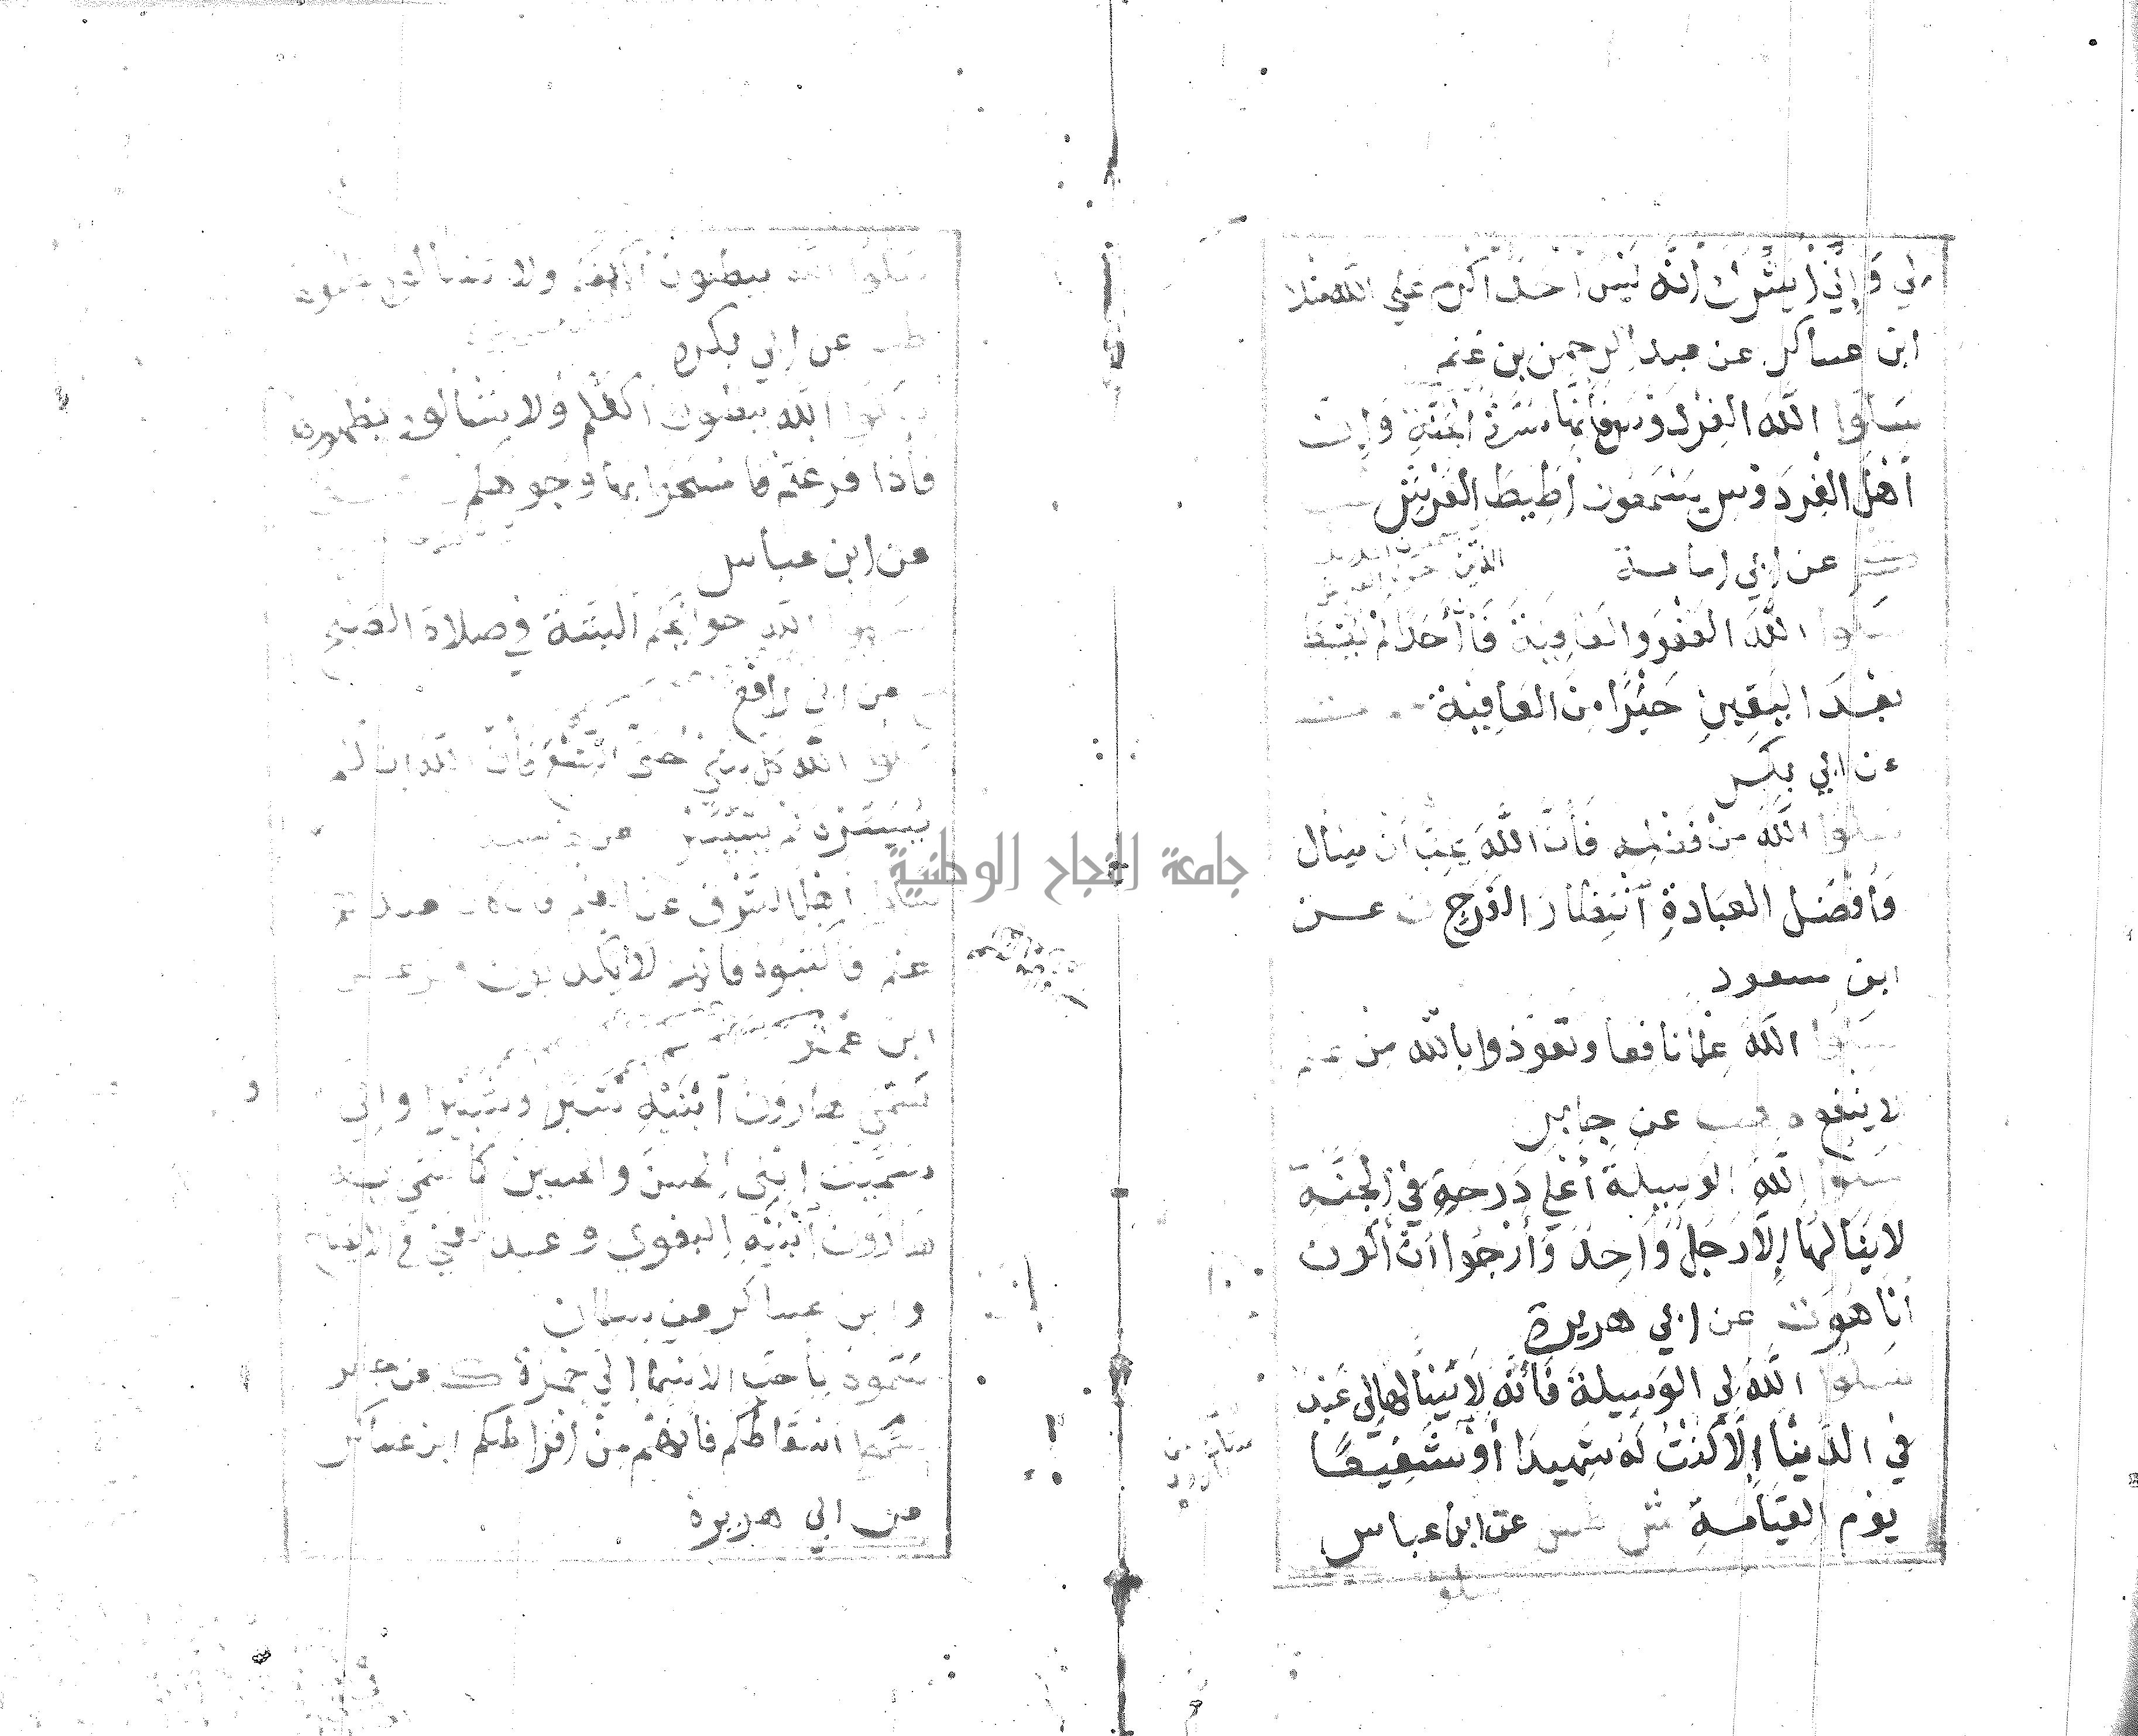 لي وَإِنِّي أُبَشِّرُكَ أَنَّهُ لَيْسَ أَحَدٌ أَكْرَمَ عَلَي اللَّهِ مِنْكَ
ابن عساكر عن عبد الرحمن بن غنم
سَلُوا اللَّهَ الفِرْدَوْسَ فَأِنَّهَا سُرَّةُ الجَنَّةِ وَإِنَّ
أَهْلَ الفِرْدَوْسِ يَسْمَعُونَ أَطِيطَ العَرْشِ
عن ابي امامة
سَلُوا اللَّهَ العَفْوَ وَالعَافِيَةَ فَأِنَّ أَحَدًا لَمْ يُعْطَ
بَعْدَ اليَقِينِ خَيْرًا مِنَ العَافِيَةِ
عن ابي بكر
سلوا اللَّهَ مِنْ فَضْلِهِ فَأِنَّ اللَّهَ يُحِبُّ أَنْ يُسْأَل
وَأَفْضَلُ العِبَادَةِ آنْتِظَارُ الفَرَجِ ت عن
ابن مسعود
سَلُوا اللَّهَ عِلْمًا نافعا وتعوذوا بالله مِن علم
لا ينفع ه هب عن جابر
سَلُوا اللَّهَ الوَسِيلَةَ أَعْلَي دَرَجَةٍ فِي الجَنَّةِ
لَا يَنَالُهَا إِلَّا رَجُلٌ وَاحِدٌ وَأَرْجُوا أَنْ أَكُونَ
أَنَا هُوَ ت عن ابي هريرة
سَلُوا اللَّهَ لِي الوَسِيلَةَ فَأِنَّهُ لَا يَسْأَلُهَا لِي عَبْدٌ
فِي الدُّنْيَا إِلَّا كُنْتُ لَهُ شَهِيدًا أَوْ شَفِيعًا
يَوْمَ القِيَامَةِ ش طس عن ابن عباس
سلو
سلوا الله ببطون أكفكم ولا تسألوه بظهورها
طب عن ابي بكره
سلوا اللَّه ببطون أكفكم ولا تسألوه بظهورها
فأذا فرغتم فامسحوا بها وجوهكم
عن ابن عباس
الله حوائجكم البتة في صلاة الصبح
عن ابي رافع
سلوا الله كل شي حتى الشسع فأن الله ان لم
يُيَسِّرْهُ لَمْ يَتَيَسَّرْ
أهل الشرف عن العلم فان كان عندهم
علم فاكتبوه فانهم لا يكذبون
ابن عمر
سَمَّي هارون آبْنَيْهِ شَبَرًا وَشَبِيرًا وإني
سميت ابني الحسن والحسين كما سمي به
هارون آبْنَيْهِ البغوي وعبد الغني في الايضاح
وابن عساكر عن سلمان
سَمُّوهُ بأحب الاسماء الي حمزة ك عن جابر
سموا اسقاطكم فأنهم من افراطكم ابن عساكر
عن ابي هريرة
جامعة النجاح الوطنية